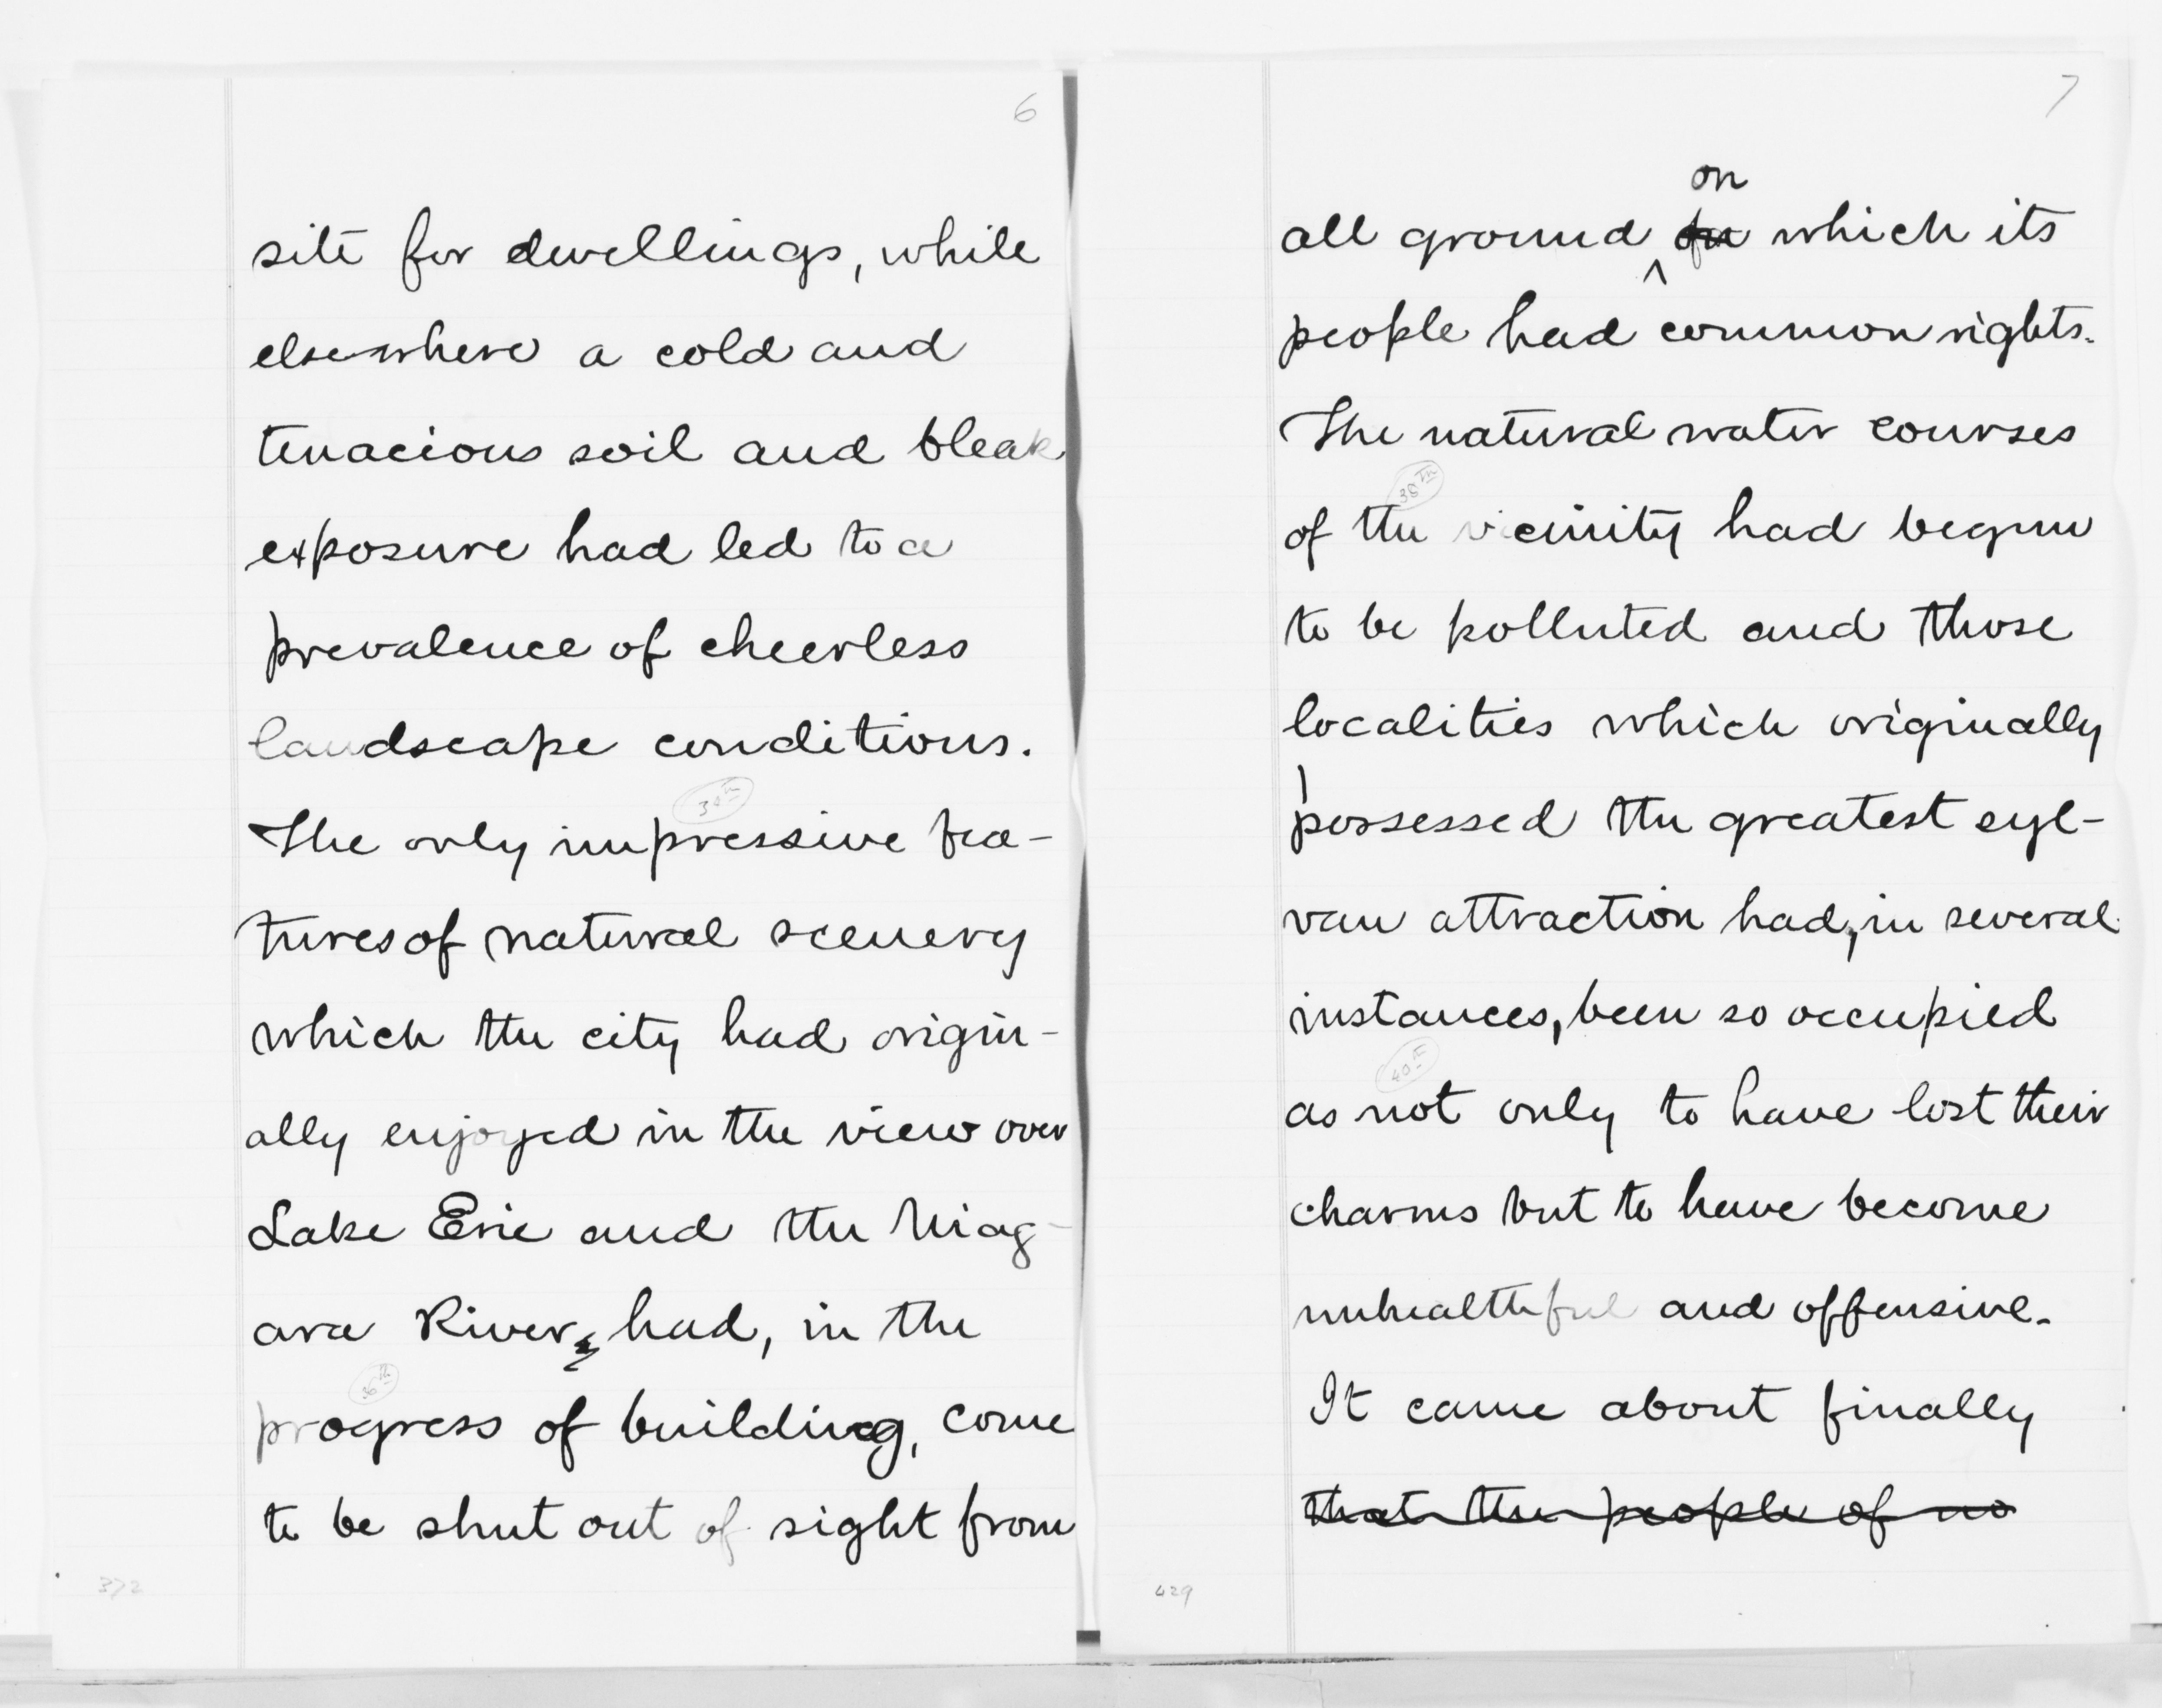 6
site for dwellings, while
elsewhere a cold and
tenacious soil and bleak
exposure had led to a
prevalence of cheerless
landscape conditions.
The only impressive fea-
tures of natural scenery
which the city had origin-
ally enjoyed in the view over
Lake Erie and the Niag-
ara River, had, in the
36th
progress of building, come
to be shut out of sight from
372
7
on
all ground on which its
people had common rights.
The natural water courses
38th
of the vicinity had begun
to be polluted and those
localities which originally
possessed the greatest syl-
van attraction had, in several
instances, been so occupied
40th
as not only to have lost their
charms but to have become
unhealthful and offensive.
It came about finally
that the people of no
429